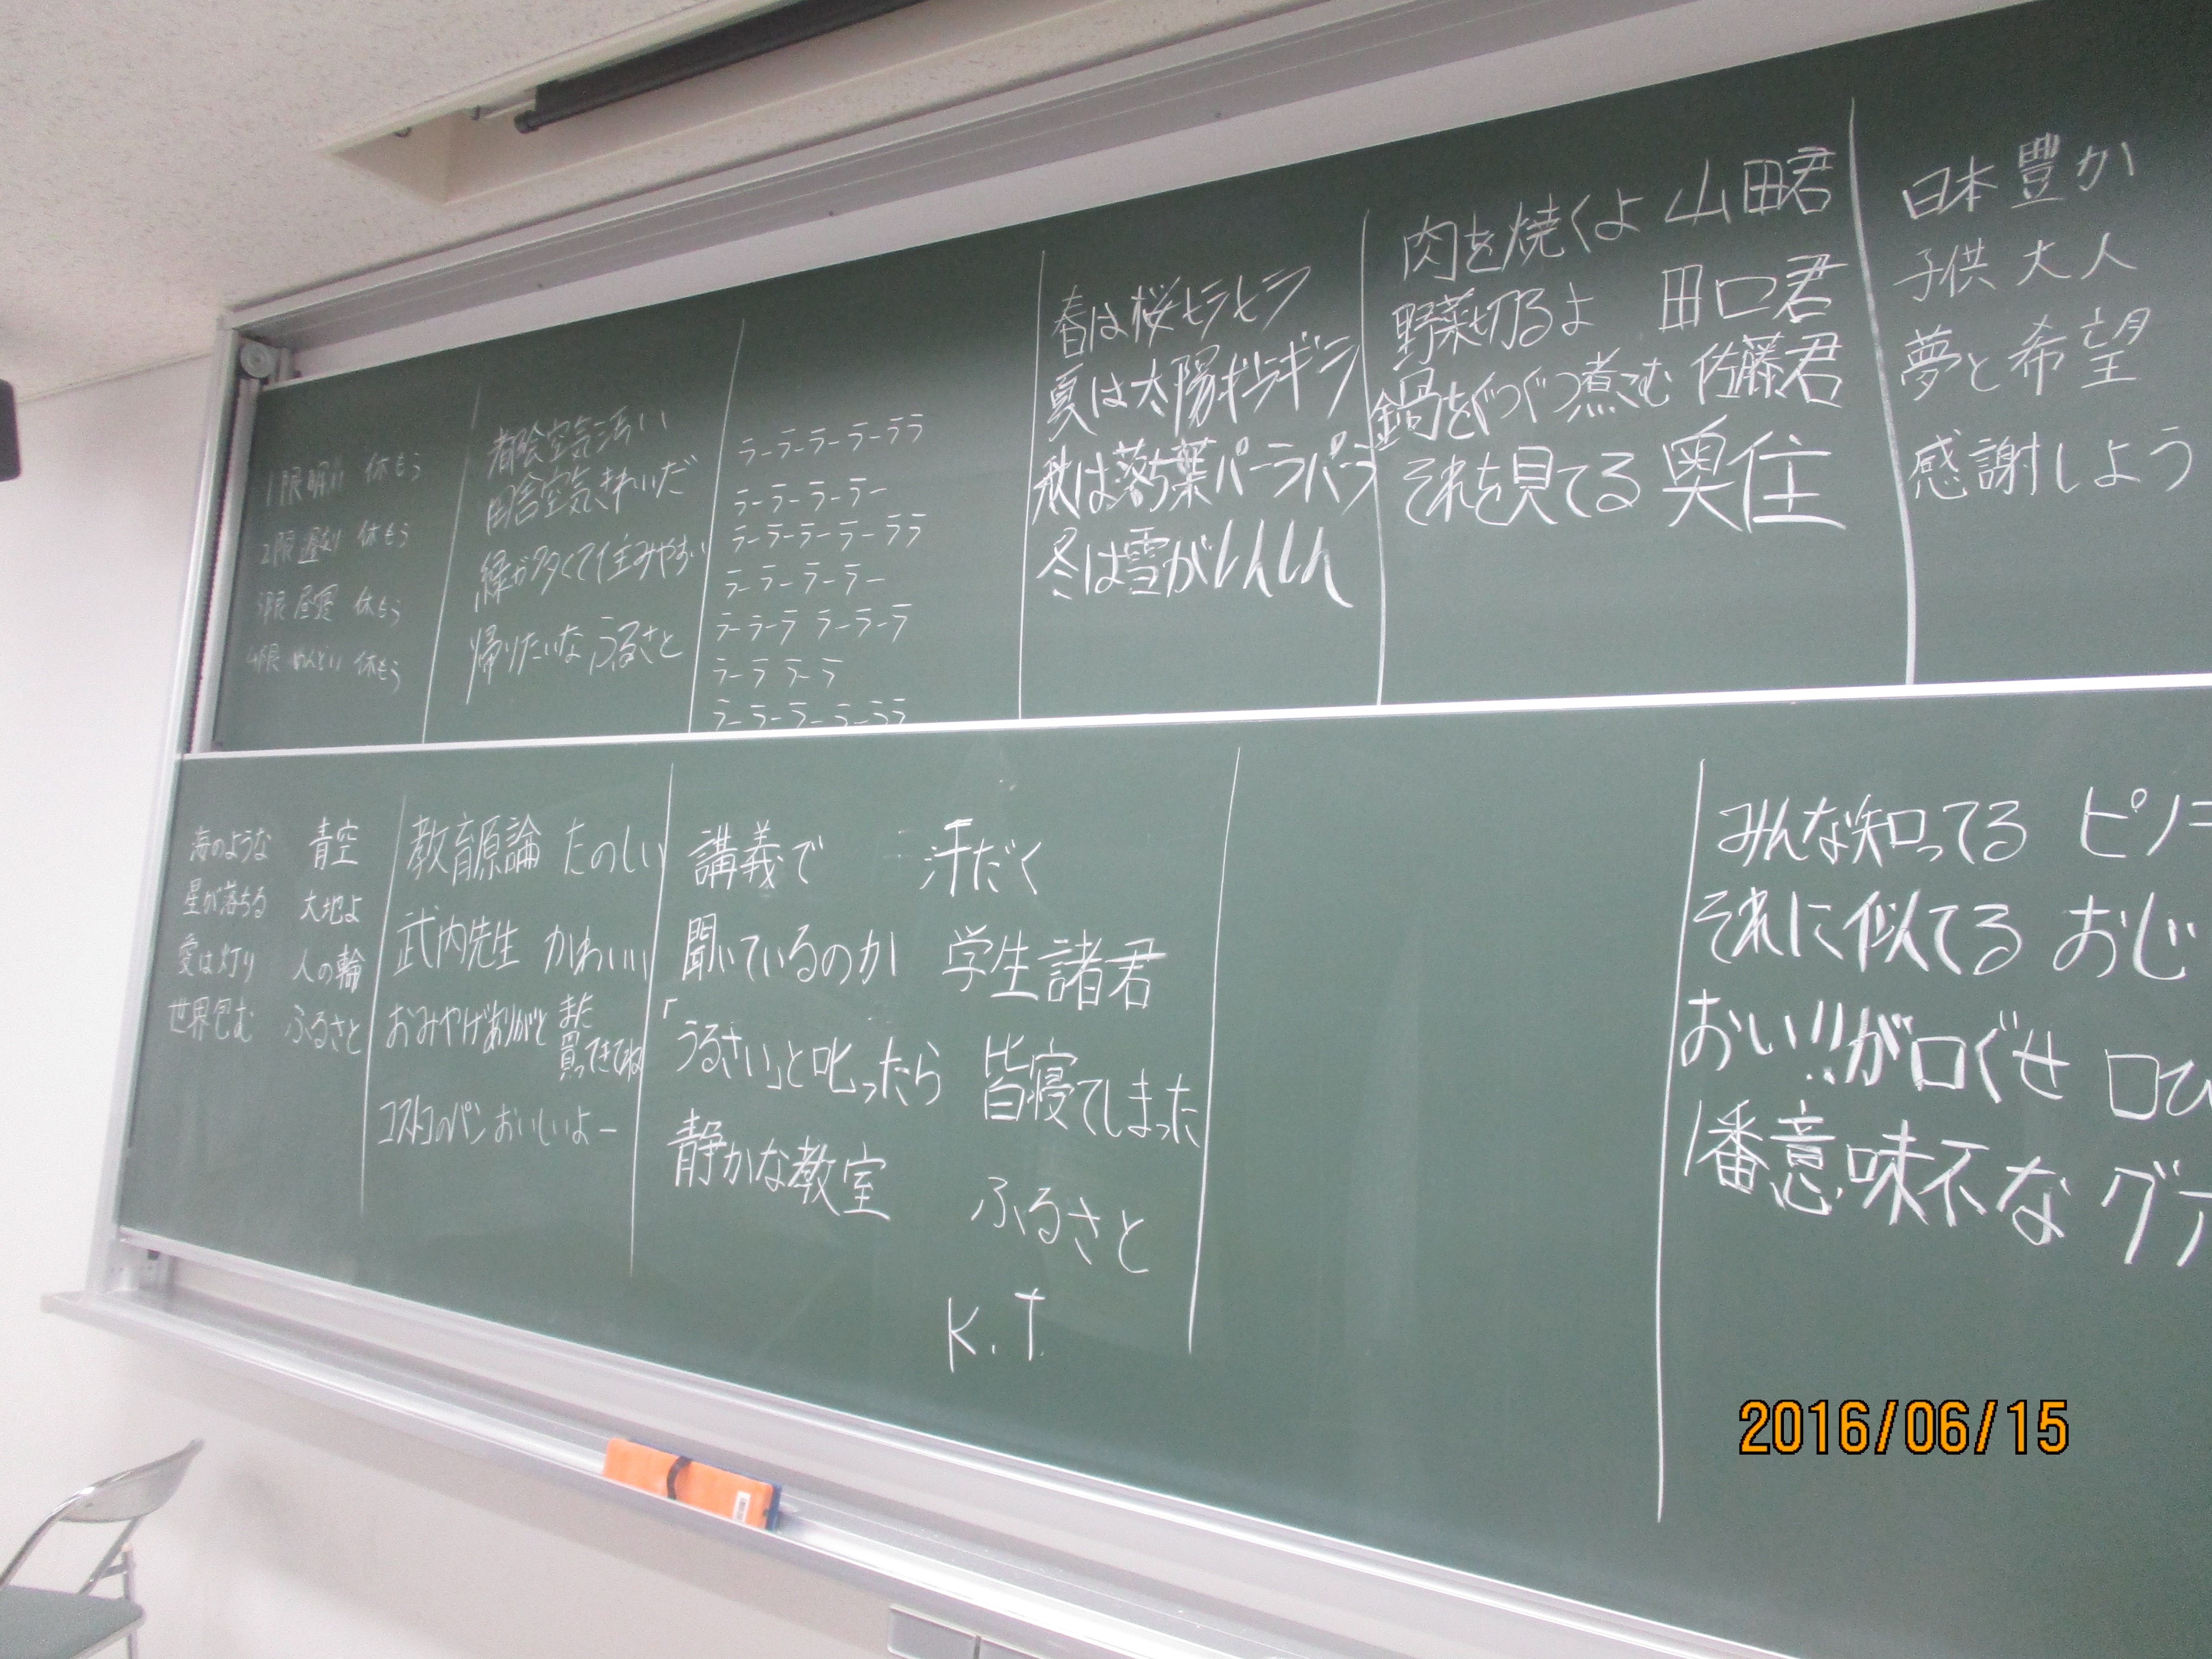 1限眠い 休もう
2限遅刻 休もう
3限昼寝 休もう
4限めんどい 休もう
都会空気汚い
田舎空気きれいだ
緑が多くて住みやすい
帰りたいな ふるさと
ラーラーラーラーララ
ラーラーラーラー
ラーラーラーラーララ
ラーラーラーラー
ラーラーララーラーラ
ラーララーラ
ラーラーラーラーララ
春は桜ヒラヒラ
夏は太陽ギラギラ
秋は落ち葉パーラパーラ
冬は雪がしんしん
肉を焼くよ 山田君
野菜切るよ 田口君
鍋をぐつぐつ煮こむ 佐藤君
それを見てる 奥住
日本豊か
子供 大人
夢と希望
感謝しよう
海のような 青空
星が落ちる 大地よ
愛は灯り 人の輪
世界包む ふるさと
教育原論 たのしい
武内先生 かわいい
おみやげありがと また買ってきてね
コストコのパンおいしいよー
講義で 汗だく
聞いているのか 学生諸君
「うるさい」と叱ったら 皆寝てしまった
静かな教室 ふるさと
K.T
みんな知ってる ピノ
それに似てる おじ
おい!!が口ぐせ 口ひ
1番意味不な グ
2016/06/15